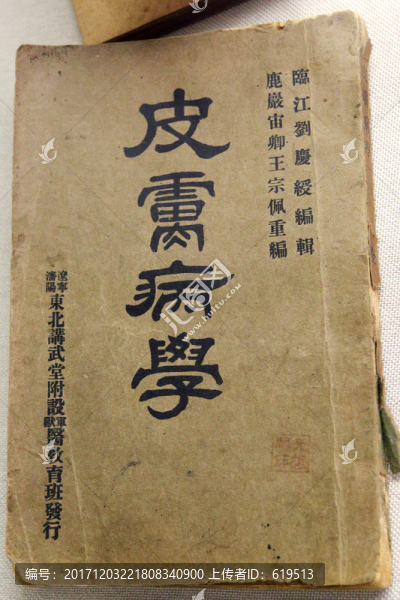 臨江劉慶綬編輯
鹿巖宙卿王宗佩重編
皮膚病學
遼寧瀋陽東北講武堂附設軍獸醫教育班發行
汇图网
www.huitu.com
编号：20171203221808340900 上传者ID：619513